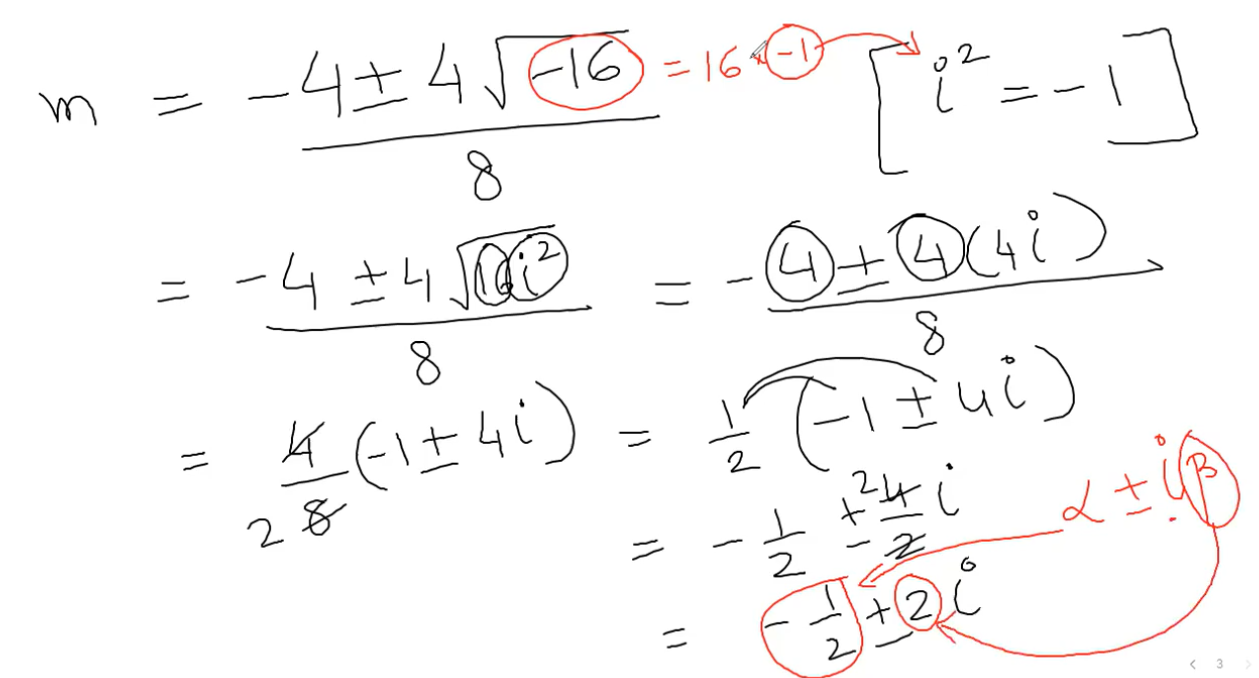 m = (-4 ± 4√(-16))/8 = 16 × -1 [i² = -1]
= (-4 ± 4√(16i²))/8 = (-4 ± 4(4i))/8
= 4/8 (-1 ± 4i) = 1/2 (-1 ± 4i)
2
= -1/2 ± 4/2 i 2 α ± iβ
= -1/2 ± 2i
< 3 >